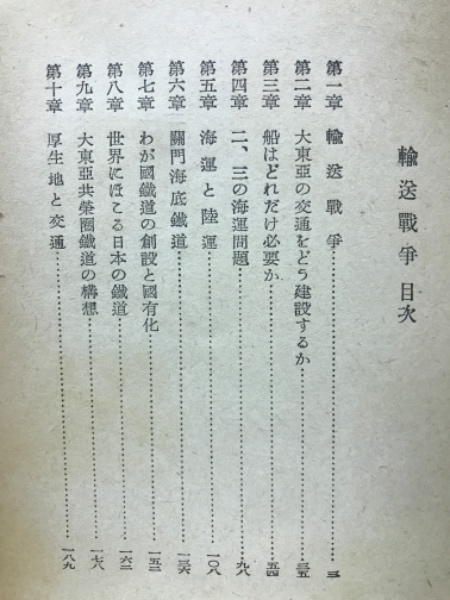 輸送戰爭 目次
第一章 輸送戰爭……三
第二章 大東亞の交通をどう建設するか……三五
第三章 船はどれだけ必要か……五四
第四章 二、三の海運問題……九八
第五章 海運と陸運……一〇八
第六章 關門海底鐵道……一三六
第七章 わが國鐵道の創設と國有化……一五二
第八章 世界にほこる日本の鐵道……一六二
第九章 大東亞共榮圈鐵道の構想……一七八
第十章 厚生地と交通……一八九